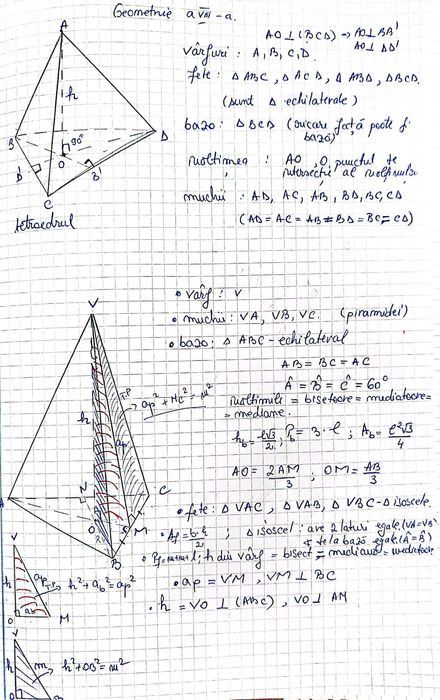 Geometrie a VIII-a.
AO⊥(BCD) → AO⊥BB'
AO⊥DD'
vârfuri : A, B, C, D.
fețe : Δ ABC, Δ ACD, Δ ABD, ΔBCD.
(sunt Δ echilaterale)
bază : Δ BCD (oricare față poate fi
bază)
înălțimea : AO, O punctul de
intersecție al înălțimilor
muchii : AD, AC, AB, BD, BC, CD
(AD = AC = AB = BD = BC = CD)
A
h
B
D
90°
O
D'
B'
C
tetraedrul
• vârf : V
• muchii : VA, VB, VC. (piramidei)
• bază : Δ ABC - echilateral
AB = BC = AC
Â = B̂ = Ĉ = 60°
înălțimile = bisectoare = mediatoare =
= mediane.
h_b = l√3/2 ; P_b = 3·l ; A_b = l²√3/4
AO = 2AM/3 ; OM = AB/3
• fețe : Δ VAC, Δ VAB, Δ VBC - Δ isoscele.
• Af = b·h/2 ; Δ isoscel : are 2 laturi egale (VA=VB)
l; h din vârf = bisect = mediană = mediatoare
• ap = VM , VM ⊥ BC
• h = VO ⊥ (ABC) , VO ⊥ AM
V
T.P
ap² + = m²
A
N
C
M
O
B
V
h
ap
h² + a_b² = ap²
O
ab
M
V
h
m
h² + OB² = m²